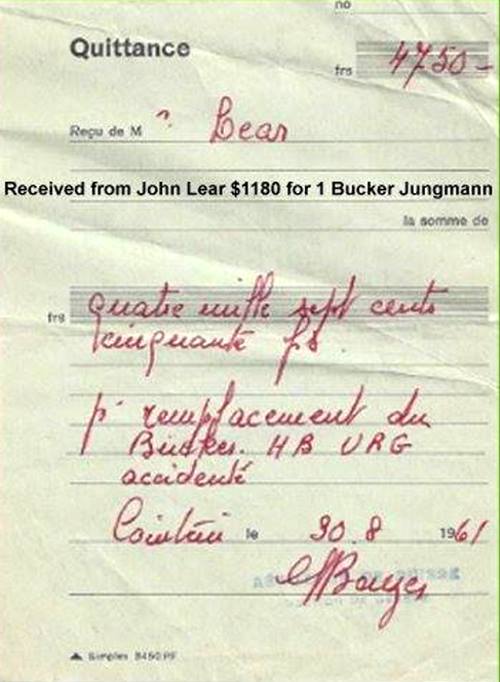 no
Quittance
frs 4750-
Reçu de M r Lear
Received from John Lear $1180 for 1 Bucker Jungmann
la somme de
frs quatre mille sept cents
cinquante fs.
pr remplacement du
Bücker. HB URG
accidenté
Cointrin le 30.8 1961
Simplex 3450 PF